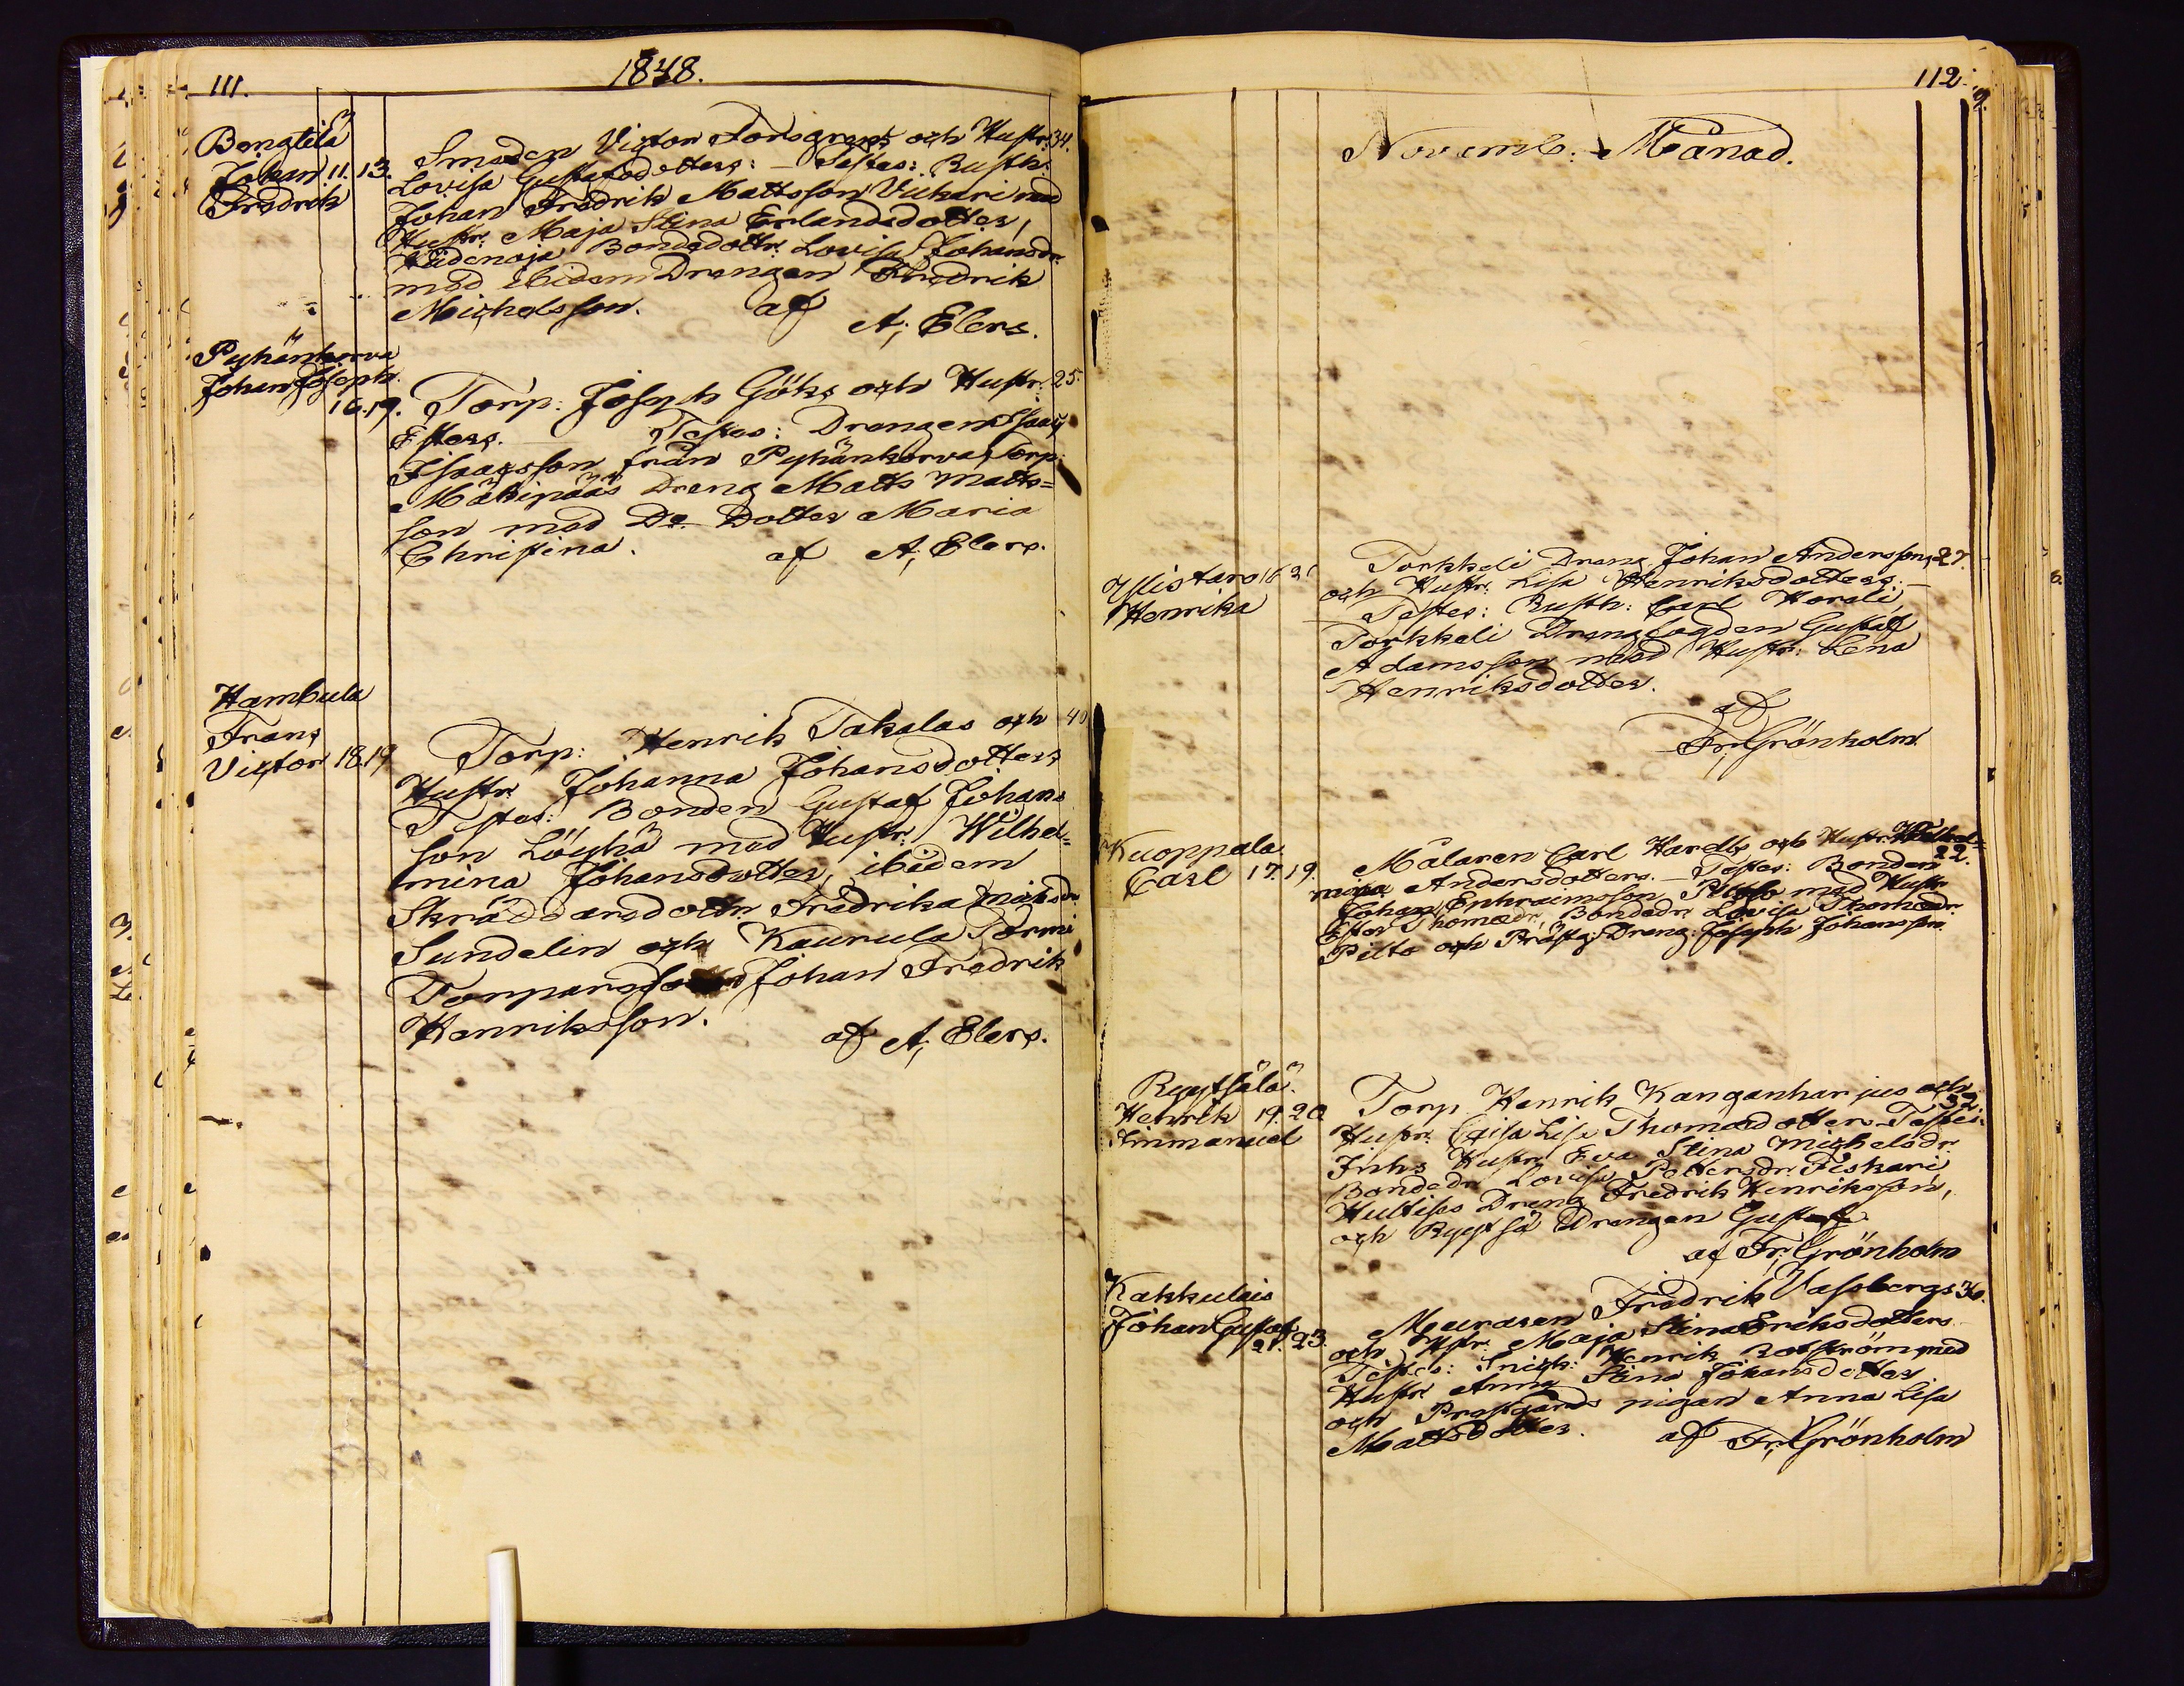 111.
1848.
Bengtilä
Johan 11. 13.
Fredrik
Smeden Victor Forsgrens och Hustr. 34.
Lovisa Gustafsdotters: — Testes: Rusth:
Johan Fredrik Mattsson Vickari med
Hustr. Maja Stina Erlandsdotter,
Hiidenoja Bondedottr. Lovisa Johansdr.
med ibidem Drengen Fredrik
Michelsson. af
A; Elers.
Pyhänkorva
Johan Joseph.
16. 19.
Torp: Joseph Göks och Hustr: 25.
Esters. — Testes: Drengen Isaac
Isaacsson från Pyhänkorva Torp:
Mäkipää Dreng Matts Matts=
son med Do Dotter Maria
Christina. af A; Elers.
Hambula
Frans
Victor 18. 19
Torp: Henrik Takalas och 40
Hustr Johanna Johansdotters
Testes: Bonden Gustaf Johans
son Löyhä med Hustr: Wilhel=
mina Johansdotter, ibidem
Skräddarsdottr Fredrika Maria
Sundelin och Kaurula Tormi
Torparsson Johan Fredrik
Henriksson.
af A; Elers.
112.
Novemb: Månad.
Ylistaro 16 21
Henrika
Torkkeli Dreng Johan Anderssons 27.
och Hustr: Lisa Henriksdotters: —
Testes: Rusth: Carl Horeli,
Torkkeli Drengfogden Gustaf
Adamsson med Hustr: Lena
Henriksdotter.
af
Fr; Grönholm
Kuoppala
Carl 17. 19.
Målaren Carl Hardts och Hustr. Wilhel=
22.
mina Andersdotters. — Testes: Bonden
Johan Ephraimsson Piltto med Hustr
Ester Thomædr, Bondedr Lovisa Thomædr.
Piltto och Prästg: Dreng: Joseph Johansson.
Ryytsälä
Henrik 19. 20
Emmanuel
Torp Henrik Kanganharjus och
32.
Hustr. Caisa Lisa Thomædotters Testes:
Inhs Hustr Eva Stina Michelsdr.
Bondedr Lovisa Pettersdr Fiskari
Hultiss Dreng Fredrik Henriksson,
och Ryytsä Drengen Gustaf
af Fr; Grönholm
Kakkulais
Johan Gustaf
21. 23.
Muraren Fredrik Vassbergs 36.
och Hstr. Maja Stina Eriksdotters
Testes: Snick: Henrik Boström med
Hustr Anna Stina Johansdotter
och Prestgårds pigan Anna Lisa
Mattsdotter. af Fr; Grönholm